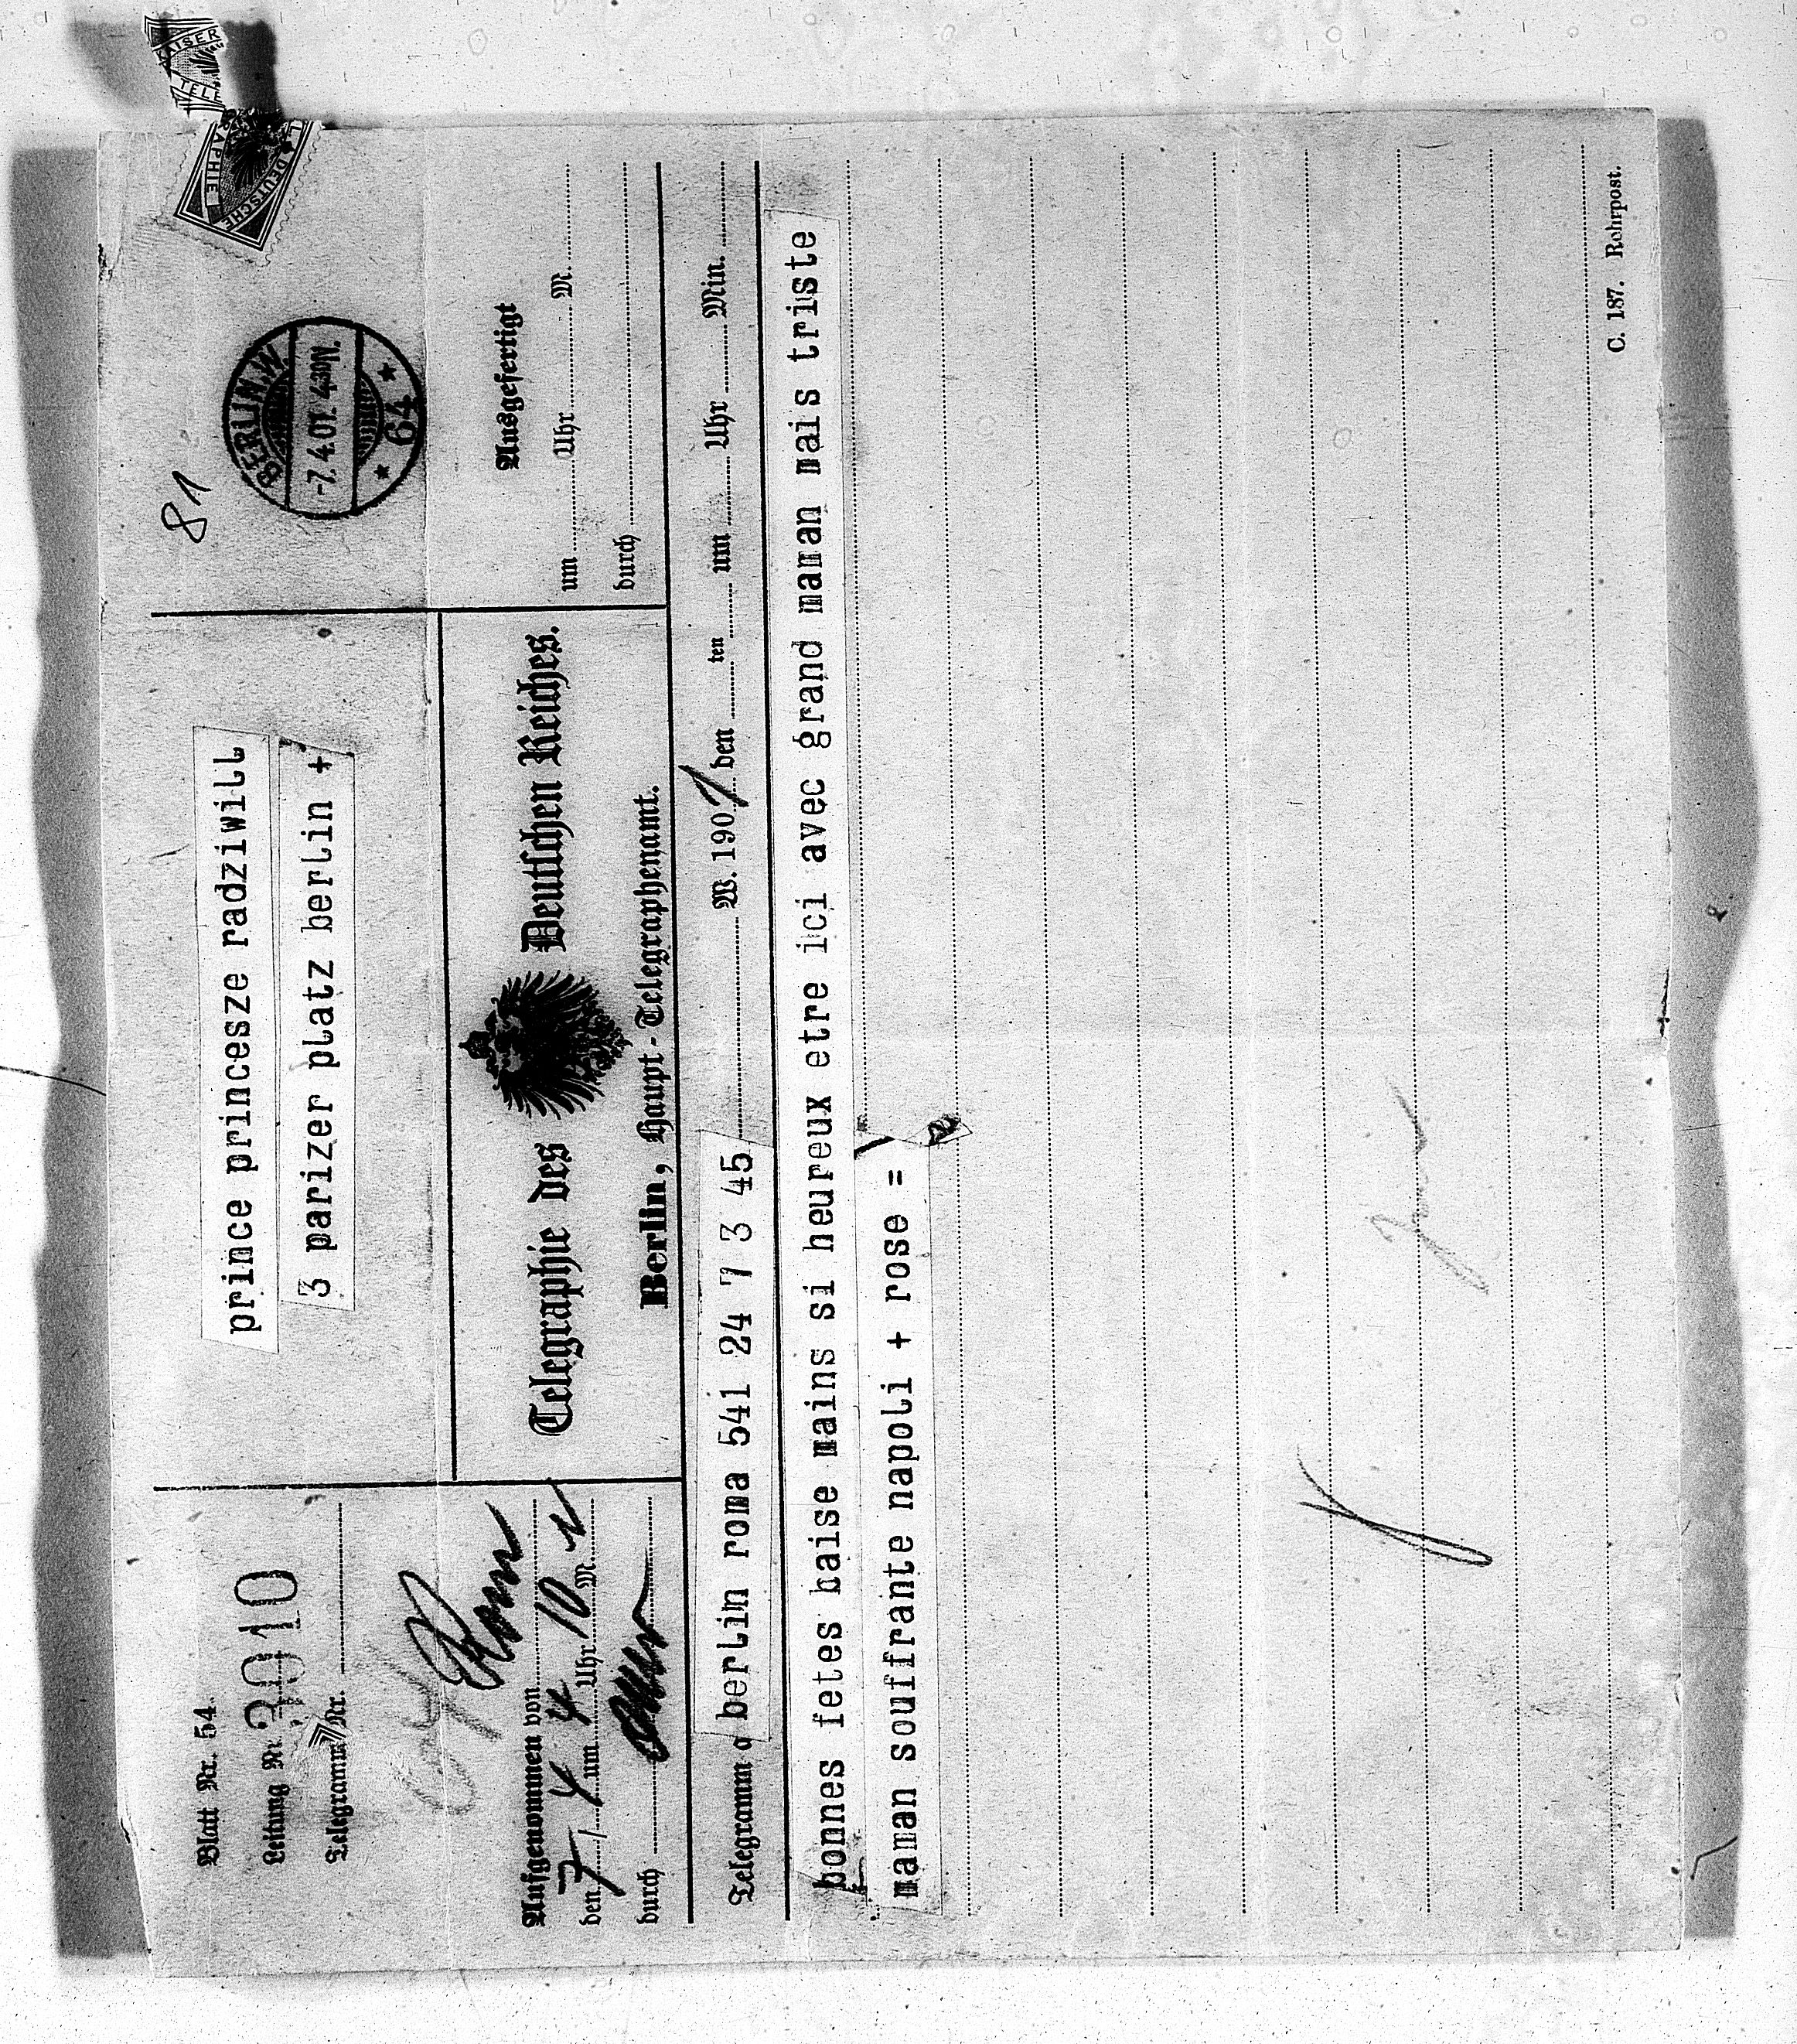 Blatt Nr. 54
Leitung Nr. 3010
Telegramm Nr.
Rom
Aufgenommen von
den 7 / 4 um 4 Uhr 10 M.
durch
prince princesze radziwill
3 parizer platz berlin +
Telegraphie des Deutschen Reiches.
Berlin, Haupt-Telegraphenamt.
81
BERLIN.W.
-7.4.07. 4-30N.
* 64 *
KAISER
TELE
DEUTSCHE
RAPHIE
Ausgefertigt
um Uhr M.
durch
Telegramm berlin roma 541 24 7 3 45 W. 1907 den ten um Uhr Min.
bonnes fetes baise mains si heureux etre ici avec grand maman mais triste
maman souffrante napoli + rose =
C. 187. Rohrpost.